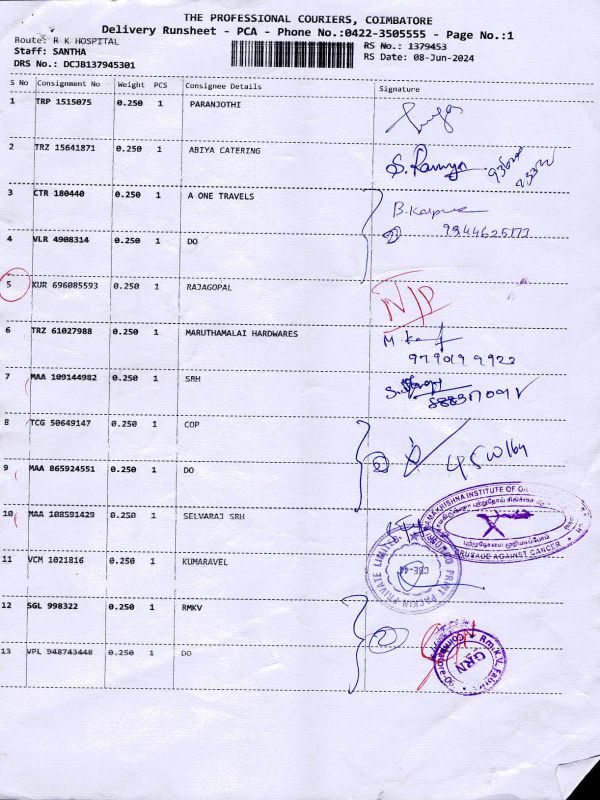 THE PROFESSIONAL COURIERS, COIMBATORE
Delivery Runsheet - PCA - Phone No.:0422-3505555 - Page No.:1
Route: R K HOSPITAL
Staff: SANTHA
DRS No.: DCJB137945301
RS No.: 1379453
RS Date: 08-Jun-2024
S No Consignment No Weight PCS Consignee Details Signature
1 TRP 1515075 0.250 1 PARANJOTHI
2 TRZ 15641871 0.250 1 ABIYA CATERING S. Ramya
3 CTR 180440 0.250 1 A ONE TRAVELS B. Kalpna
4 VLR 4908314 0.250 1 DO 2 9944625177
5 KUR 696085593 0.250 1 RAJAGOPAL N/P
6 TRZ 61027988 0.250 1 MARUTHAMALAI HARDWARES
979019 9922
7 MAA 109144982 0.250 1 SRH
8 TCG 50649147 0.250 1 COP
9 MAA 865924551 0.250 1 DO 2
10 MAA 108591429 0.250 1 SELVARAJ SRH
CRUSADE AGAINST CANCER
11 VCM 1021816 0.250 1 KUMARAVEL
12 SGL 998322 0.250 1 RMKV 2
13 VPL 948743448 0.250 1 DO
GRN